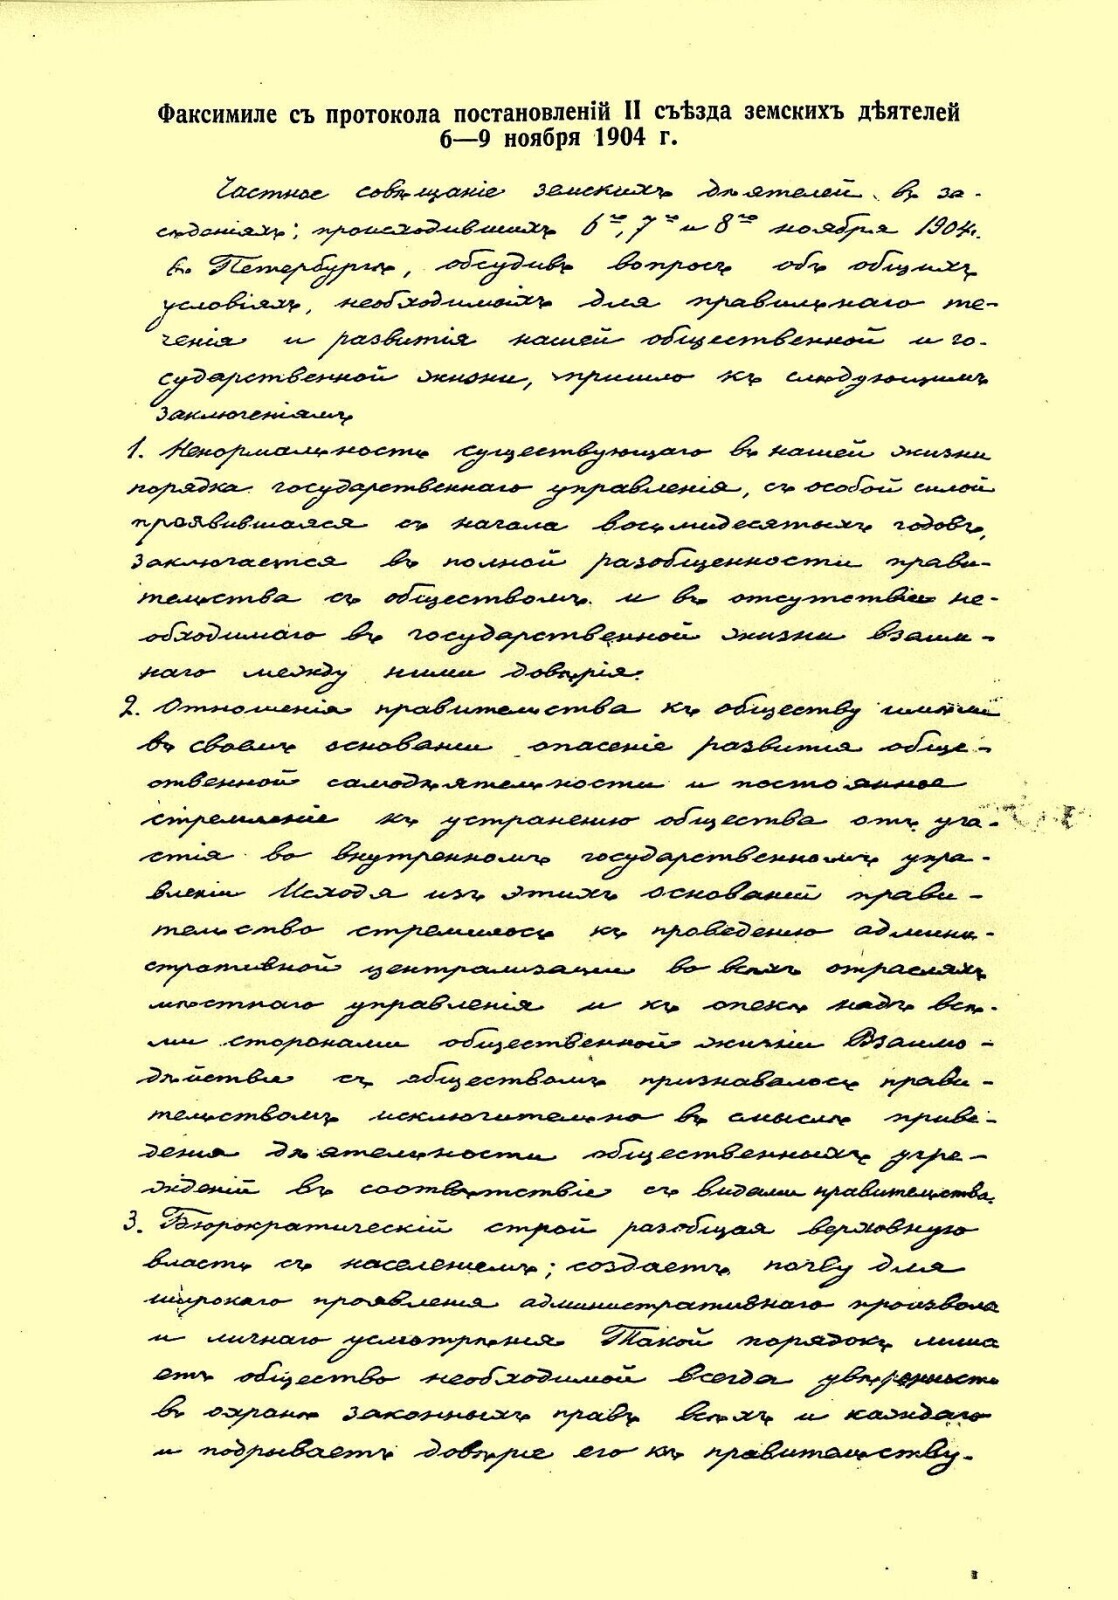 Факсимиле съ протокола постановленій II съѣзда земскихъ дѣятелей
6—9 ноября 1904 г.
Частное совѣщаніе земскихъ дѣятелей въ за-
сѣданіяхъ, происходившихъ 6го, 7го и 8го ноября 1904г.
въ Петербургѣ, обсудивъ вопросъ объ общихъ
условіяхъ, необходимыхъ для правильнаго те-
ченія и развитія нашей общественной и го-
сударственной жизни, пришло къ слѣдующимъ
заключеніямъ
1. Ненормальность существующаго въ нашей жизни
порядка государственнаго управленія, съ особой силой
проявившаяся съ начала восьмидесятыхъ годовъ,
заключается въ полной разобщенности прави-
тельства съ обществомъ и въ отсутствіи не-
обходимаго въ государственной жизни взаим-
наго между ними довѣрія.
2. Отношенія правительства къ обществу имѣли
въ своемъ основаніи опасеніе развитія обще-
ственной самодѣятельности и постоянное
стремленіе къ устраненію общества отъ уча-
стія во внутреннемъ государственномъ упра-
вленіи Исходя изъ этихъ основаній прави-
тельство стремилось къ проведенію админи-
стративной централизаціи во всѣхъ отрасляхъ
мѣстнаго управленія и къ опекѣ надъ всѣ-
ми сторонами общественной жизни Взаимо-
дѣйствіе съ обществомъ признавалось прави-
тельствомъ исключительно въ смыслѣ приве-
денія дѣятельности общественныхъ учре-
жденій въ соотвѣтствіе съ видами правительства.
3. Бюрократическій строй разобщая верховную
власть съ населеніемъ, создаетъ почву для
широкаго проявленія административнаго произвола
и личнаго усмотрѣнія Такой порядокъ лиша
етъ общество необходимой всегда увѣренности
въ охранѣ законныхъ правъ всѣхъ и каждаго
и подрываетъ довѣріе его къ правительству.